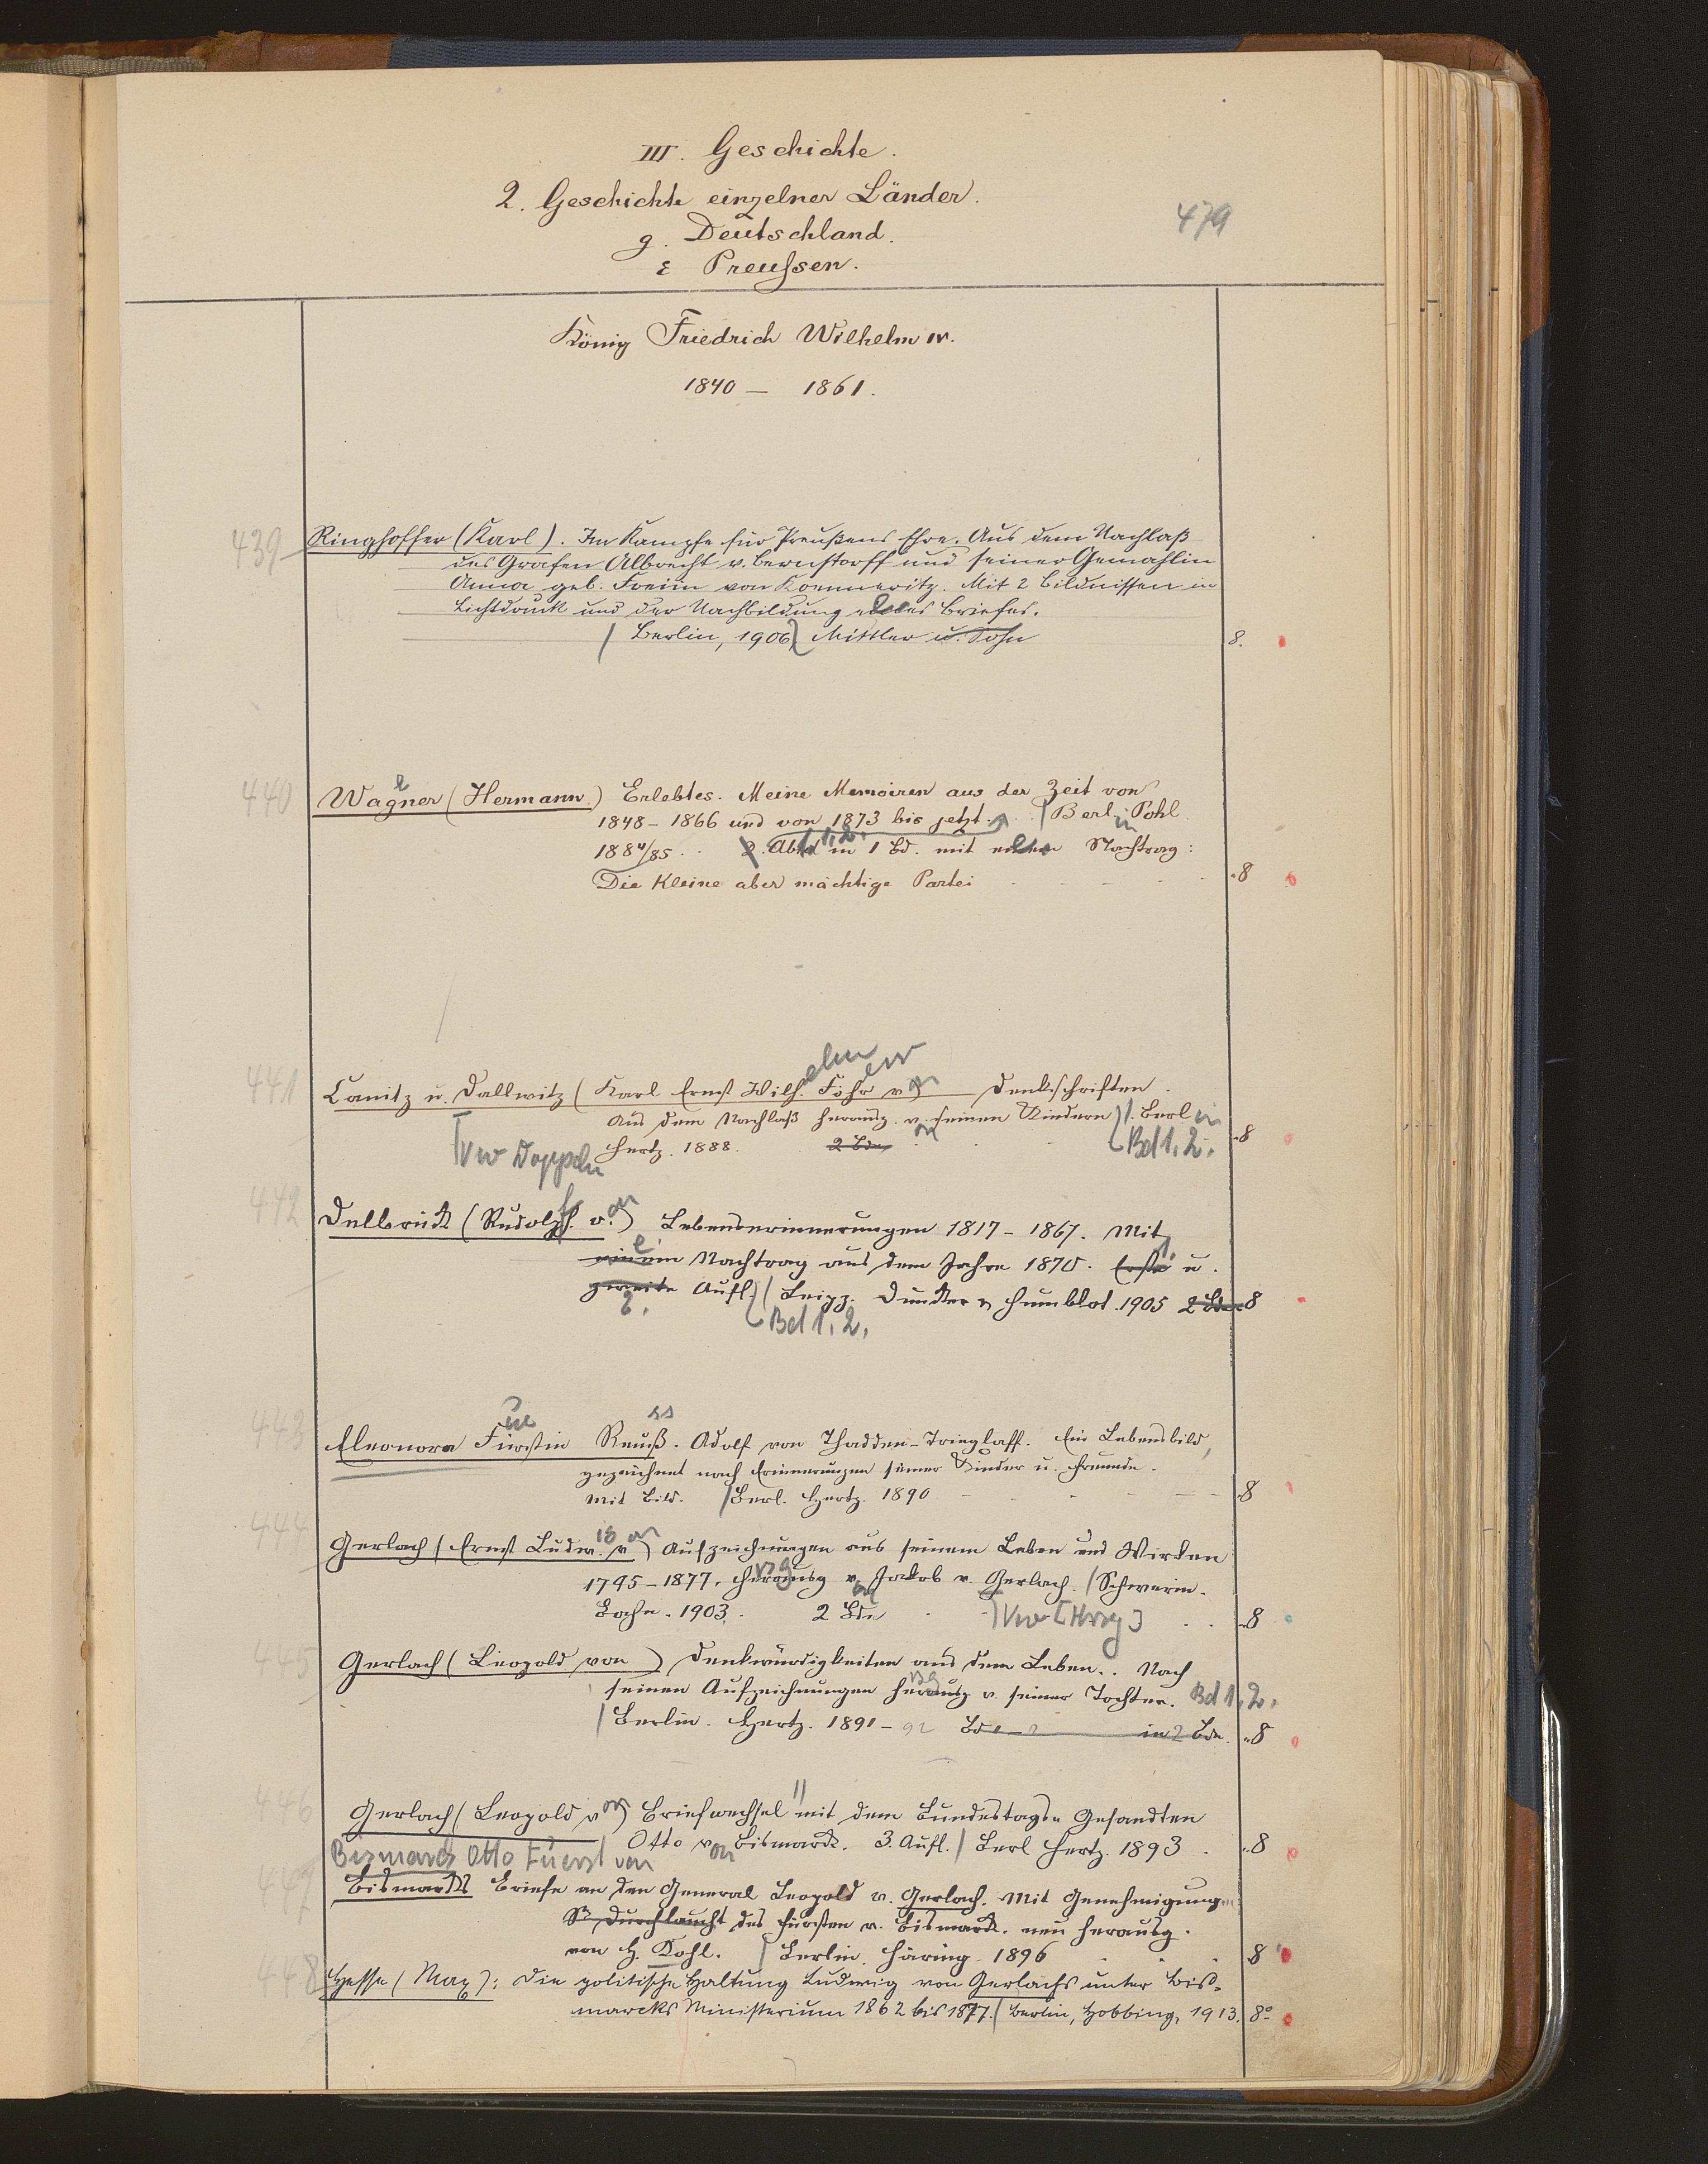 III. Geschichte.
2. Geschichte einzelner Länder.
479
g. Deutschland.
ε Preußen.
König Friedrich Wilhelm IV.
1840 – 1861.
439 Ringhoffer (Karl). Im Kampfe für Preußens Ehre. Aus dem Nachlaß
des Grafen Albrecht v. Bernstorff und seiner Gemahlin
Anna geb. Freiin von Koenneritz. Mit 2 Bildnissen in
Lichtdruck und der Nachbildung eines Briefes.
/ Berlin, 1906 Mittler u. Sohn 8.
440 Wagner (Hermann) Erlebtes. Meine Memoiren aus der Zeit von
e
1848 – 1866 und von 1873 bis jetzt. / Berl. Pohl
1884/85. 2. Abtd in 1 Bd. mit einem Nachtrag:
Die Kleine aber mächtige Partei 8
elm err
441 Canitz u. Dallwitz (Karl Ernst Wilh. Frhr v on Denkschriften.
Aus dem Nachlaß herausg. v. seinen Kindern / Berl in
Hertz. 1888. 2 Bde Bd 1. 2. 8
Vw Doppeln
442 Delbrück (Rudolph. v. on) Lebenserinnerungen 1817 – 1867. Mit
einem Nachtrag aus dem Jahre 1870. Erste u.
zweite Aufl. / Leipz. Duncker & Humblot. 1905 2 Bde 8
2. Bd 1. 2.
ue ss
443 Eleonora Fürstin Reuß. Adolf von Thadden-Trieglaff. Ein Lebensbild,
gezeichnet nach Erinnerungen seiner Kinder u. Freunde.
Mit Bild. / Berl. Hertz. 1890 8
444 Gerlach (Ernst Ludw. ig v on) Aufzeichnungen aus seinem Leben und Wirken
1795 – 1877. Herausg v. Jakob v. Gerlach. / Schwerin.
Bahn. 1903. 2 Bde Vw [Hrsg] 8
445 Gerlach (Leopold von) Denkwürdigkeiten aus dem Leben. . Nach
seinen Aufzeichnungen herausg v. seiner Tochter. Bd 1. 2.
/ Berlin. Hertz. 1891 – 92 Bd 1 – 2 in 2 Bdn. 8
446 Gerlach (Leopold v on) Briefwechsel mit dem Bundestags= Gesandten
Otto v on Bismarck. 3. Aufl. / Berl Hertz. 1893. 8
Bismarck Otto Fuerst von
447 Bismarcks Briefe an den General Leopold v. Gerlach. Mit Genehmigung
Sr Durchlaucht des Fürsten v. Bismarck. neu herausg.
von H. Kohl. / Berlin. Häring 1896 8
448 Hesse (Max): Die politische Haltung Ludwig von Gerlachs unter Bis=
marcks Ministerium 1862 bis 1877. / Berlin, Hobbing, 1913. 8°